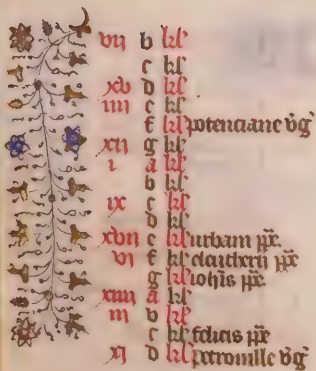 vij b kl'
c kl'
xv d kl'
iiij e kl'
f kl' potenciane v̄g'
xij g kl'
i a kl'
b kl'
ix c kl'
d kl'
xvij e kl' urbani pp̄e
vi f kl' eleutherii pp̄e
g kl' ioh̄is pp̄e
xiiij a kl'
iij b kl'
c kl' felicis pp̄e
xi d kl' petronille v̄g'